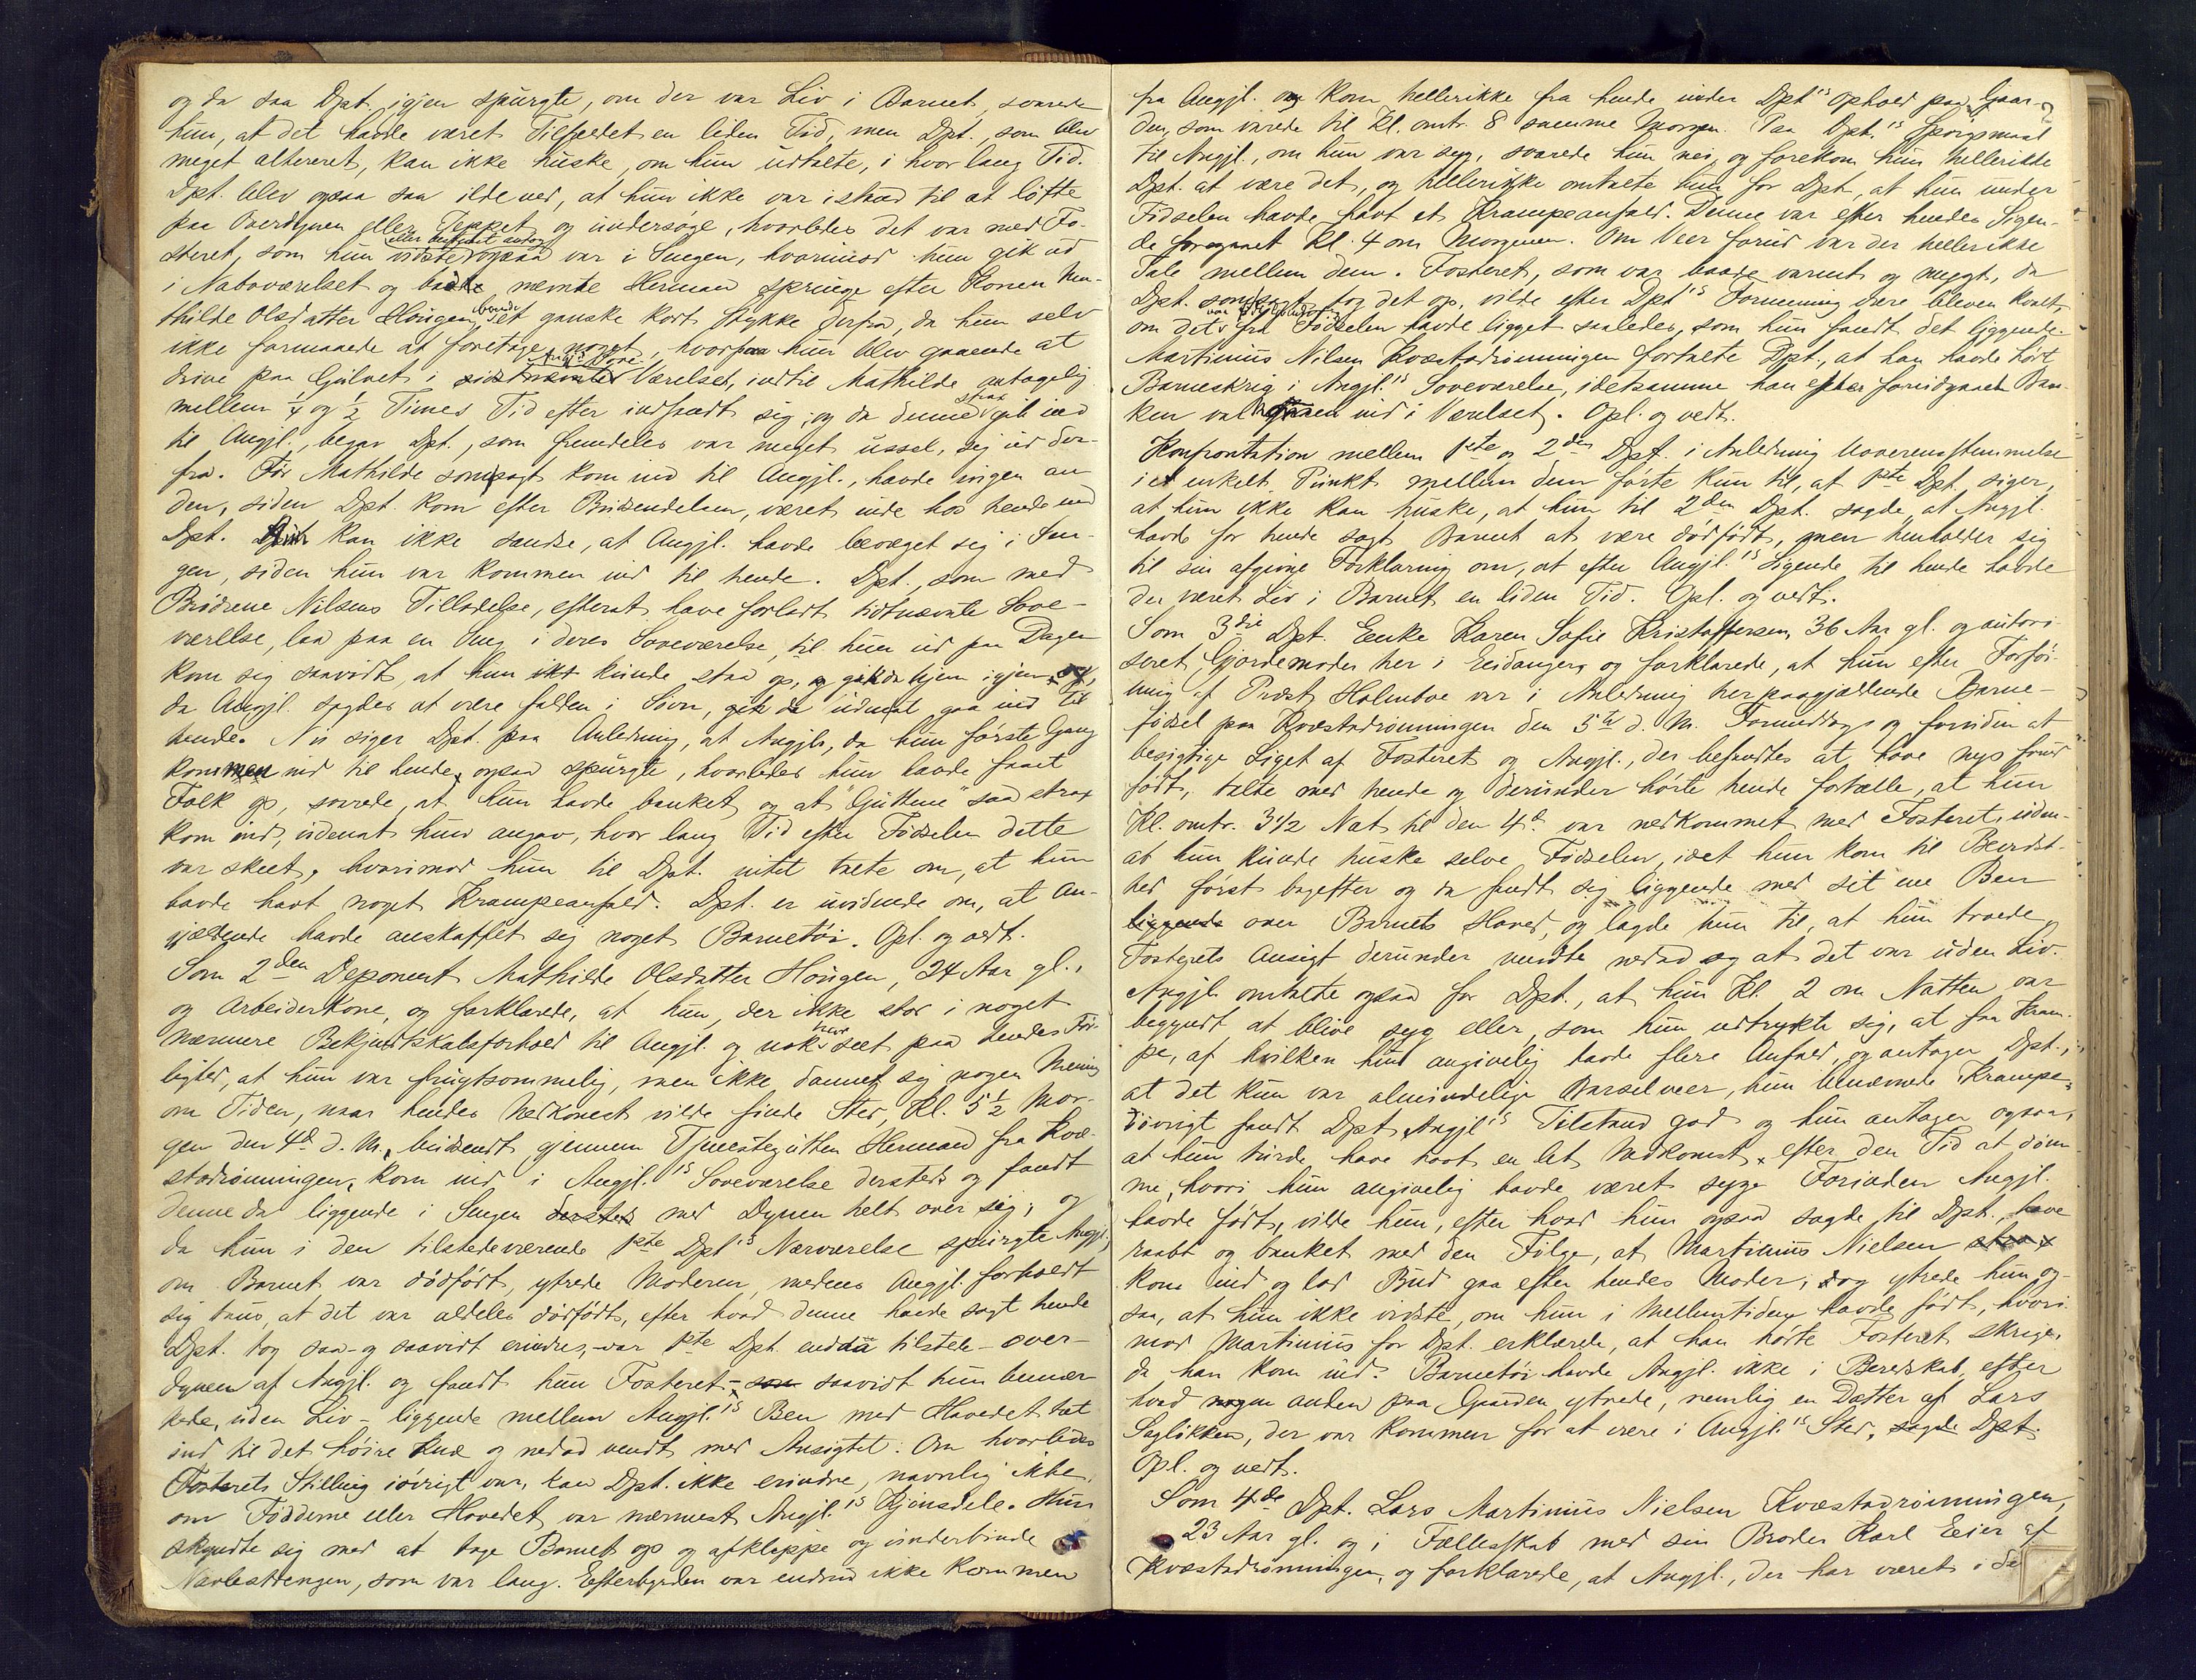 og da saa Dpt. igjen spurgte, om der var Liv i Barnet, svarede
hun, at det havde været Tilfældet en liden Tid, men Dpt., som blev
meget altereret, kan ikke huske, om hun udtalte, i hvor lang Tid.
Dpt. blev ogsaa saa ilde ved, at hun ikke var istand til at løfte
paa Overdynen eller Teppet og undersøge, hvorledes det var med Fo-
eller bestemt antog
steret, som hun vidste ogsaa var i Sengen, hvorimod hun gik ud
i Naboværelset og bad nævnte Herman springe efter Konen Ma-
thilde Olsdatter Hougen, boende et ganske kort Stykke derfra, da hun selv
ikke formaaede at foretage noget, hvorpaa hun blev gaaende at
drive paa Gulvet i sidstnævnte Værelset, indtil Mathilde antagelig
mellem ¼ og ½ Times Tid efter indfandt sig; og da denne strax gik ind
til Angjl., begav Dpt., som fremdeles var meget ussel, sig ud der-
fra. Før Mathilde somsagt kom ind til Angjl., havde ingen an-
den, siden Dpt. kom efter Budsendelsen, været inde hos hende end
Dpt. kan ikke sandse, at Angjl. havde bevæget sig i Sen-
gen, siden hun var kommen ind til hende. Dpt., som med
Brødrene Nilsens Tilladelse, efterat have forladt sidtnævnte Sove-
værelse, laa paa en Seng i deres Soveværelse, til hun ud paa Dagen
kom sig saavidt, at hun ikt kunde staa op, og gik da hjem igjen og,
da Angjl. sagdes at være falden i Søvn, gik da udenat gaa ind til
hende. Nu siger Dpt. paa Anledning, at Angjl., da hun første Gang
kommen ind til hende, ogsaa spurgte, hvorledes hun havde faaet
Folk op, svarede, at hun havde banket og at "Guttene" saa strax
kom ind, udenat hun angav, hvor lang Tid efter Fødselen dette
var skeet, hvorimod hun til Dpt. intet talte om, at hun
havde havt noget Krampeanfald. Dpt. er uvidende om, at An-
gjældende havde anskaffet sig noget Barnetøi. Opl. og vedt.
Som 2den Deponent Mathilde Olsdatter Hougen, 24 Aar gl.,
og Arbeiderkone, og forklarede, at hun, der ikke stod i noget
nærmere Bekjendtskabsforhold til Angjl. og nok har seet paa hendes Før-
lighed, at hun var frugtsommelig, men ikke dannet sig nogen Mening
om Tiden, naar hendes Nedkomst vilde finde Sted, Kl. 5½ Mor-
gen den 4de d. M., budsendt gjennem Tjenestegutten Herman fra Kvæ-
stadrønningen, kom ind i Angjl.'s Soveværelse dersteds og fandt
denne da liggende i Sengen dersteds med Dynen helt over sig, og
da hun i den tilstedeværende 1ste Dpt's Nærværelse spurgte Angjl.,
om Barnet var dødfødt, ytrede Moderen, medens Angjl. forholdt
sig taus, at det var aldeles dødfødt, efter hvad denne havde sagt hende.
Dpt. tog saa - og saavidt erindres, var 1ste Dpt. endda tilstede - over-
dynen af Angjl. og fandt hun Fosteret - som saavidt hun bemær-
kede, uden Liv - liggende mellem Angjl.'s Ben med Hovedet tæt
ind til det høire Knæ og nedad vendt med Ansigtet. Om hvorledes
Fosterets Stilling iøvrigt var, kan Dpt. ikke erindre, navnlig ikke
om Fødderne eller Hovedet var nærmest Angjl.'s Kjønsdele. Hun
skyndte sig med at tage Barnet op og afklippe og underbinde
Navlestrengen, som var lang. Efterbyrden var endnu ikke kommen
fra Angjl. og kom hellerikke fra hende under Dpt's Ophold paa Gaar-
den, som varede til Kl. omtr. 8 samme Morgen. Paa Dpt.'s Spørgsmaal
til Angjl., om hun var syg, svarede hun nei, og forekom hun hellerikke
Dpt. at være det, og hellerikke omtalte hun for Dpt., at hun under
Fødselen havde havt et Krampeanfald. Denne var efter hendes Sigen-
de foregaaet Kl. 4 om Morgenen. Om Veer forud var der hellerikke
Tale mellem dem. Fosteret, som var baade varmt og mygt, da
Dpt. somsagt tog det op, vilde efter Dpt's Formening være bleven kvalt,
om det fra Fødselen havde ligget saaledes, som hun fandt det liggende.
Martinius Nilsen Kvæstadrønningen fortalte Dpt., at han havde hørt
Barneskrig i Angjl.'s Soveværelse, idetsamme han efter forudgaaet Ban-
ken var ind i Værelset. Opl. og vedt.
Konfrontation mellem 1ste og 2den Dpt. i Anledning Uoverensstemmelse
i et enkelt Punkt mellem dem førte kun til, at 1ste Dpt. siger,
at hun ikke kan huske, at hun til 2den Dpt. sagde, at Angjl.
havde for hende sagt Barnet at være dødfødt, men henholder sig
til sin afgivne Forklaring om, at efter Angjl.'s Sigende til hende havde
der været Liv i Barnet en liden Tid. Opl. og vedt.
Som 3die Dpt. Enke Karen Sofie Kristoffersen, 36 Aar gl. og autori-
seret Gjordemoder her i Eidanger, og forklarede, at hun efter Forføi-
ning af Præst Holmboe var i Anledning herpaagjældende Barne-
fødsel paa Kvæstadrønningen den 5te d. M. Formiddags og foruden at
besigtige Liget af Fosteret og Angjl., der befandtes at have nys forud
født, talte med hende og derunder hørte hende fortælle, at hun
Kl. omtr. 3½ Nat til den 4de var nedkommet med Fosteret, uden-
at hun kunde huske selve Fødselen, idet hun kom til Bevidst-
hed først bagefter og da fandt sig liggende med sit ene Ben
liggende over Barnets Hoved, og lagde hun til, at hun troede,
Fosterets Ansigt derunder vendte nedad og at det var uden Liv.
Angjl. omtalte ogsaa for Dpt., at hun Kl. 2 om Natten var
begyndt at blive syg eller, som hun udtrykte sig, at faa Kram-
pe, af hvilken hun angivelig havde flere Anfald, og antager Dpt.,
at det kun var almindelige Barselveer, hun benævnede Krampe.
Iøvrigt fandt Dpt. Angjl's Tilstand god og hun antager ogsaa,
at hun turde have havt en let Nedkomst, efter den Tid at døm-
me, hvori hun angivelig havde været syg. Forinden Angjl.
havde født, vilde hun, efter hvad hun ogsaa sagde til Dpt., have
raabt og banket med den Følge, at Martinius Nielsen strax
kom ind og lod Bud gaa efter hendes Moder, dog ytrede hun og-
saa, at hun ikke vidste, om hun i Mellemtiden havde født, hvori-
mod Martinius for Dpt. erklærede, at han hørte Fosteret skrige,
da han kom ind. Barnetøi havde Angjl. ikke i Beredskab, efter
hvad nogen anden paa Gaarden ytrede, nemlig en Datter af Lars
Sagløkken, der var kommen for at være i Angjl.'s Sted, sagde Dpt.
Opl. og vedt.
Som 4de Dpt. Lars Martinius Nielsen Kvæstadrønningen,
23 Aar gl. og i Fællesskab med sin Broder Karl Eier af
Kvæstadrønningen, og forklarede, at Angjl., der har været i de